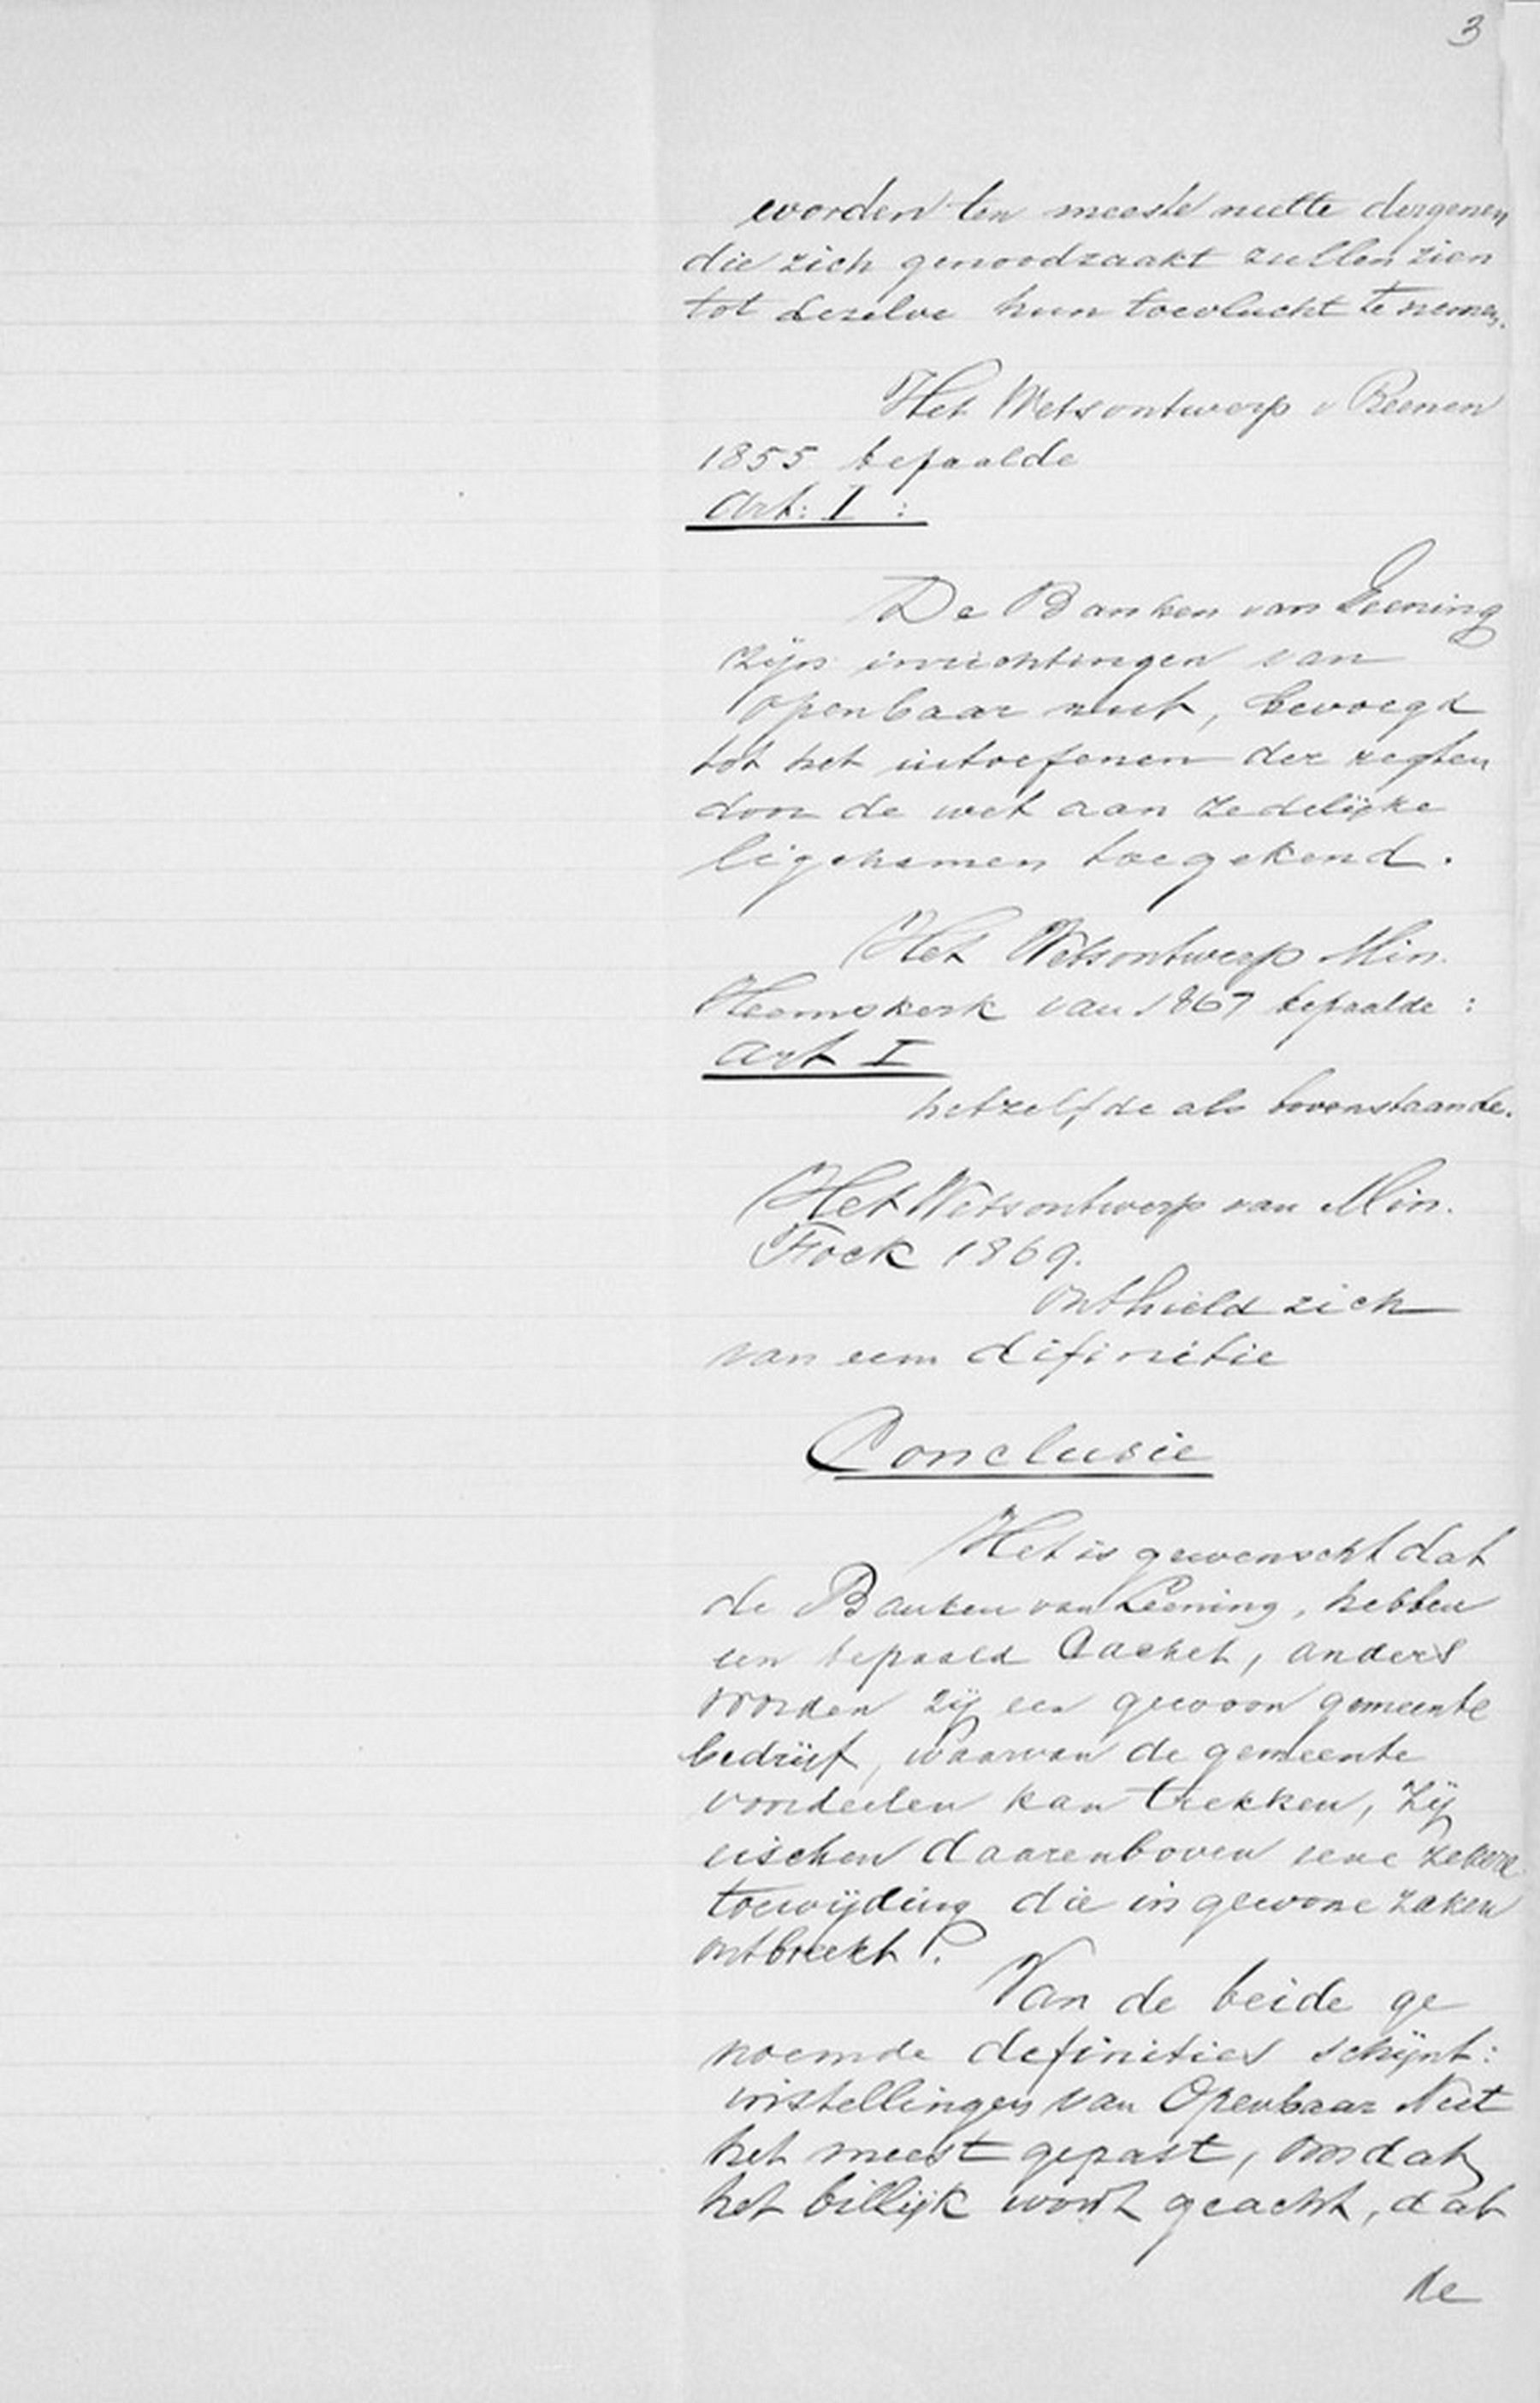 3
worden ten meeste nutte dergenen
die zich genoodzaakt zullen zien
tot dezelve hun toevlucht te nemen.
Het Wetsontwerp v Reenen
1855 bepaalde
Art: I :
De Banken van Leening
zijn inrichtingen van
openbaar nut, bevoegd
tot het uitoefenen der regten
door de wet aan zedelijke
ligchamen toegekend.
Het Wetsontwerp Min.
Heemskerk van 1867 bepaalde :
Art I
hetzelfde als bovenstaande.
Het Wetsontwerp van Min.
Fock 1869.
onthield zich
van een difinitie
Conclusie
Het is gewenscht dat
de Banken van Leening, hebben
een bepaald Cachet, anders
worden zij een gewoon gemeente
bedrijf, waarvan de gemeente
voordeelen kan trekken, zij
eischen daarenboven eene zekere
toewijding die in gewone zaken
ontbreekt.
Van de beide ge
noemde definities schijnt:
instellingen van Openbaar Nut
het meest gepast, omdat
het billijk wordt geacht, dat
de